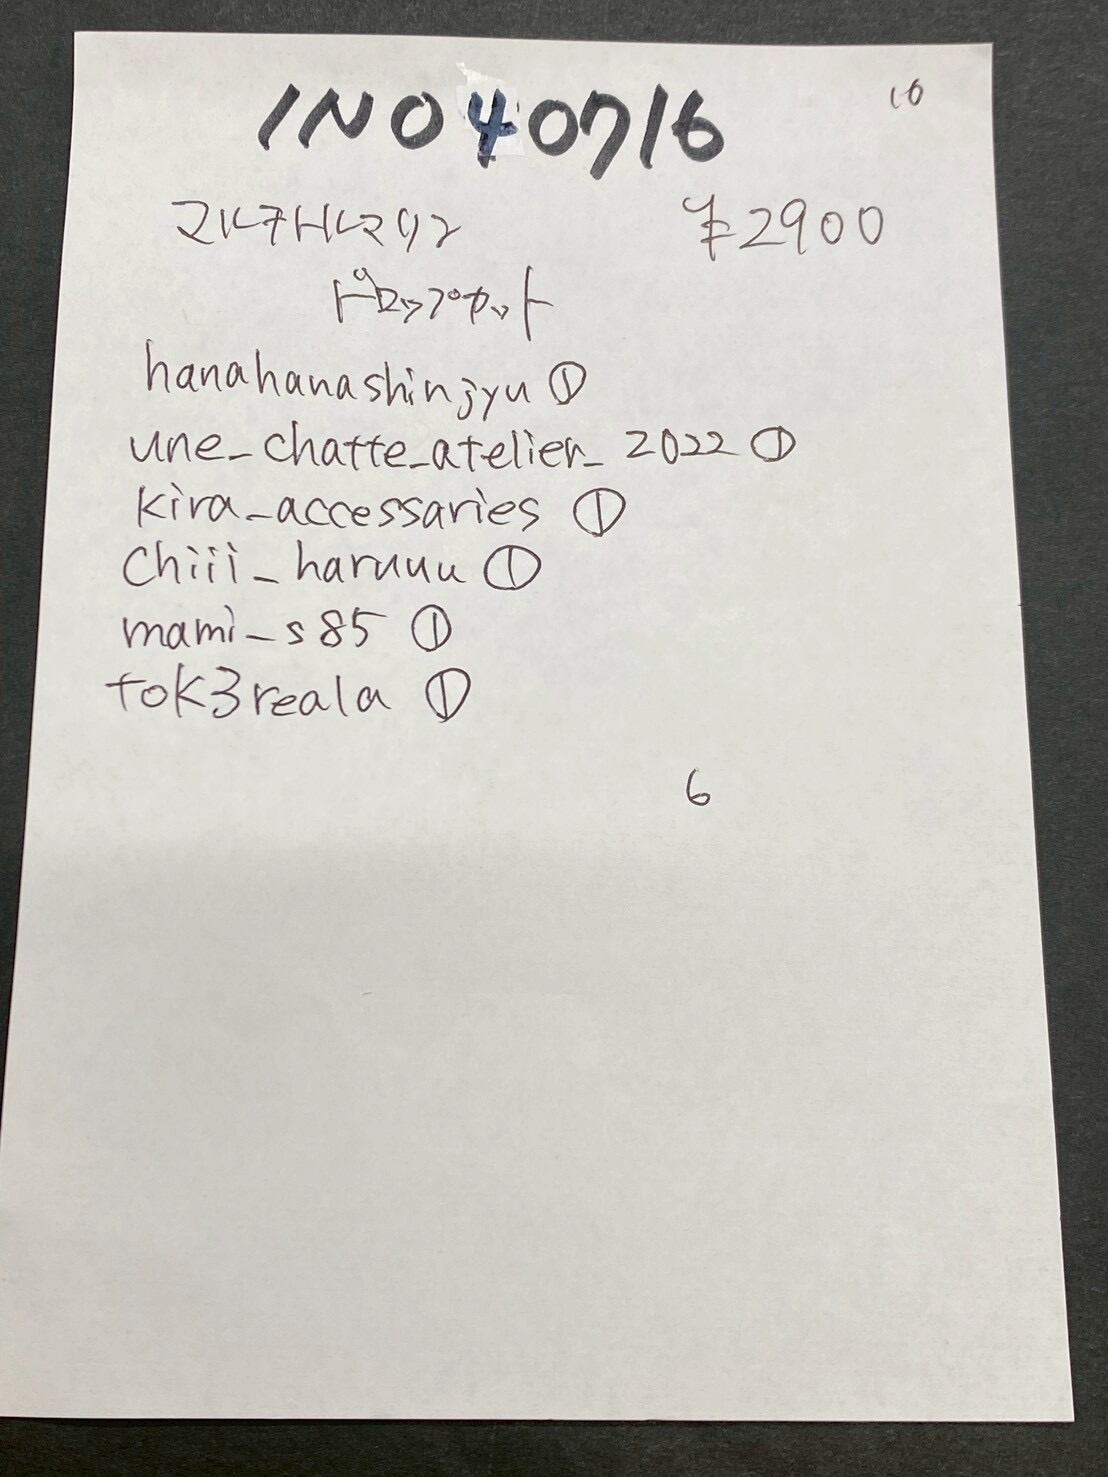 INO40716
10
マルチトルマリン ¥2900
ドロップカット
hanahanashinjyu ①
une_chatte_atelier_2022 ①
kira_accessaries ①
Chiii_haruuu ①
mami_s85 ①
tok3reala ①
6